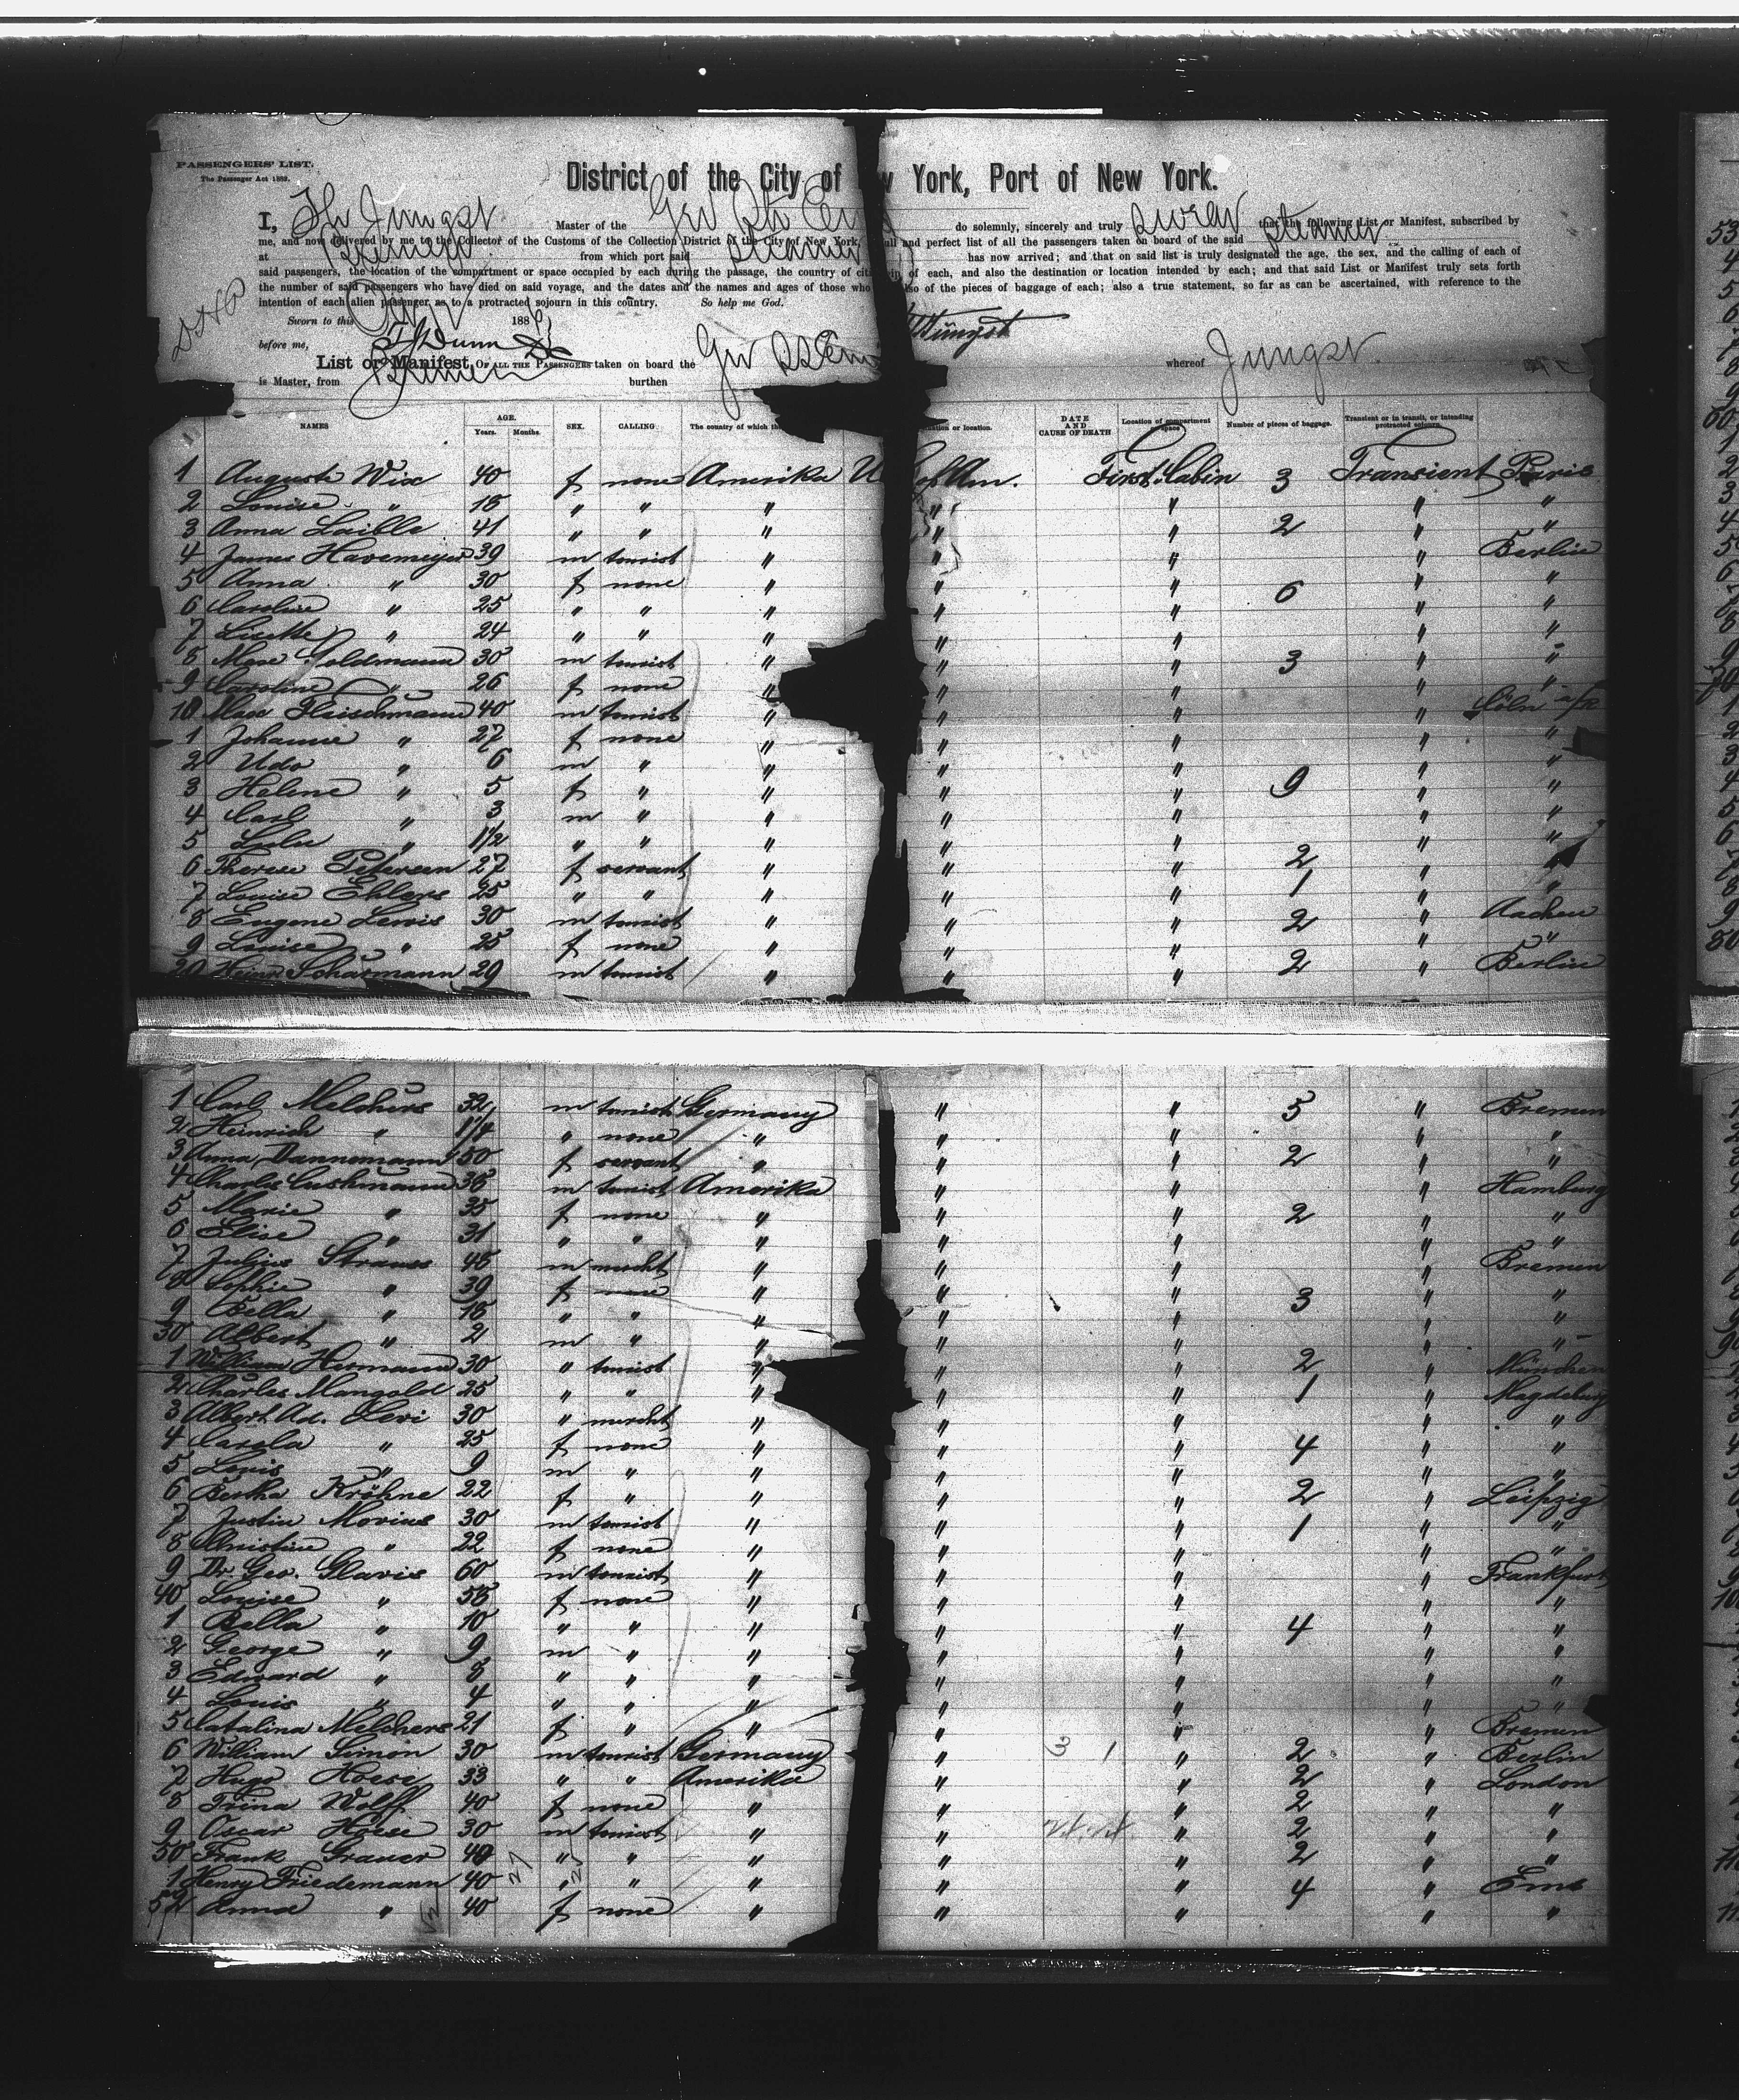 PASSENGERS' LIST.
The Passenger Act 1882.
District of the City of w York, Port of New York.
I, Th Jungst Master of the Gr Str Ems do solemnly, sincerely and truly swear that the following List or Manifest, subscribed by
me, and now delivered by me to the Collector of the Customs of the Collection District of the City of New York, ull and perfect list of all the passengers taken on board of the said Steamer
at Bremen from which port said Steamer has now arrived; and that on said list is truly designated the age, the sex, and the calling of each of
said passengers, the location of the compartment or space occupied by each during the passage, the country of citi of each, and also the destination or location intended by each; and that said List or Manifest truly sets forth
the number of said passengers who have died on said voyage, and the dates and the names and ages of those who lso of the pieces of baggage of each; also a true statement, so far as can be ascertained, with reference to the
intention of each alien passenger as to a protracted sojourn in this country. So help me God.
Sworn to this 188 Th Jüngst
before me,
List or Manifest OF ALL THE PASSENGERS taken on board the Gr SS Ems whereof Jungst
is Master, from Bremen burthen
NAMES AGE. Years. Months. SEX. CALLING The country of which th tion or location. DATE AND CAUSE OF DEATH Location of compartment or space Number of pieces of baggage. Transient or in transit, or intending protracted sojourn.
1 Auguste Wix 40 f none Amerika U of Am. First Cabin 3 Transient Paris
2 Louise " 18 " " " " " " "
3 Anna 41 " " " " " 2 " "
4 James Havemeyer 39 m tourist " " " " Berlin
5 Anna " 30 f none " " " 6 " "
6 Caroline " 25 " " " " " " "
7 Lisette " 24 " " " " " " "
8 Max Goldmann 30 m tourist " " " 3 " "
9 Caroline " 26 f none " " " " "
10 Max Fleischmann 40 m tourist " " " " Cöln a/R
1 Johanne " 27 f none " " " " "
2 Udo " 6 m " " " " " "
3 Helene " 5 f " " " " 9 " "
4 Carl " 3 m " " " " " "
5 Lulu " 1½ " " " " " " "
6 Therese Petersen 27 f servant " " " 2 " "
7 Louise Ehlers 25 " " " " " 1 " "
8 Eugene Lewis 30 m tourist " " " 2 " Aachen
9 Louise " 25 f none " " " " "
20 Heinr Scharmann 29 m tourist " " " 2 " Berlin
1 Carl Melchers 32 m tourist Germany " " 5 " Bremen
2 Heinrich " 1¼ " none " " " "
3 Anna Dannemann 50 f servant " " " 2 " "
4 Charles Cushmann 36 m tourist Amerika " " " Hamburg
5 Marie " 35 f none " " " 2 " "
6 Elise " 31 " " " " " " "
7 Julius Strauss 48 m mercht " " " " Bremen
8 Sophie " 39 f none " " " 3 " "
9 Bella " 18 " " " " " " "
30 Albert " 2 m " " " " " "
1 William Hermann 30 " tourist " " " 2 " München
2 Charles Mangold 25 " " " " " 1 " Magdeburg
3 Albert Ad. Levi 30 " mercht " " " " "
4 Carola " 25 f none " " " 4 " "
5 Louis " 9 m " " " " " "
6 Bertha Kröhne 22 f " " " " 2 " Leipzig
7 Justin Morius 30 m tourist " " " 1 " "
8 Christine " 22 f none " " " " "
9 Dr. Geo. Glavis 60 m tourist " " " " Frankfurt
40 Louise " 58 f none " " " " "
1 Bella " 10 " " " " " 4 " "
2 George " 9 m " " " " " "
3 Edward " 8 " " " " " " "
4 Louis " 4 " " " " " " "
5 Catalina Melchers 21 f " " " " " Bremen
6 William Simon 30 m tourist Germany " " 2 " Berlin
7 Hugo Hoese 33 " " Amerika " " 2 " London
8 Trina Wolff 40 f none " " " 2 " "
9 Oscar Hoese 30 m tourist " " " 2 " "
50 Frank Grauer 40 " " " " " 2 " "
1 Henry Friedemann 40 " " " " " 4 " Ems
52 Anna " 40 f none " " " " "